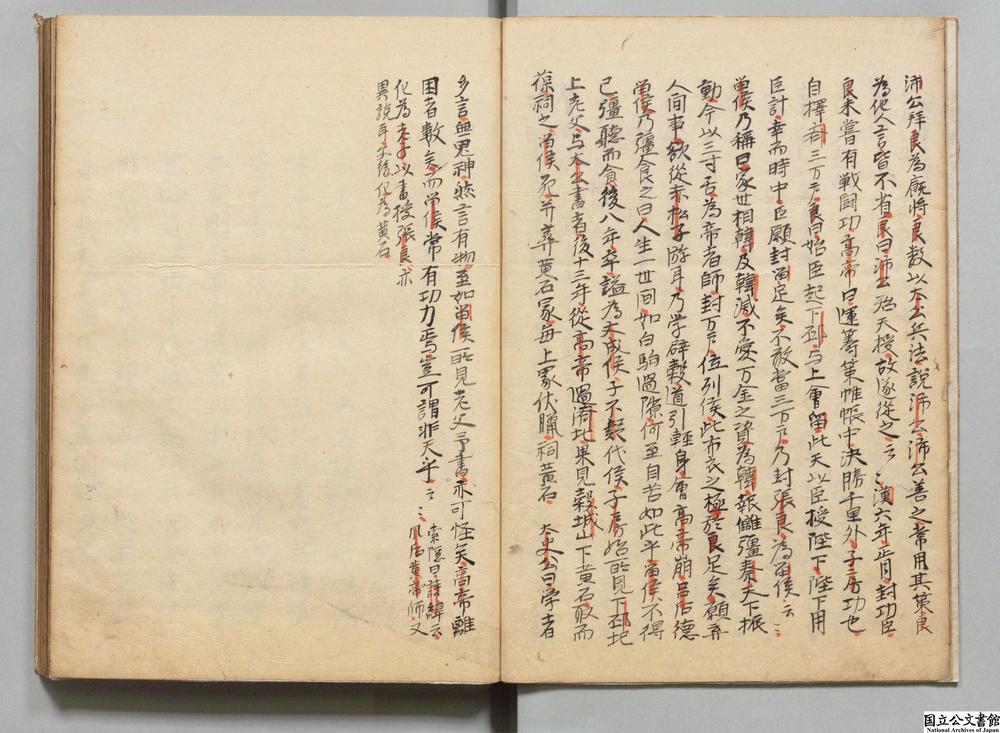 沛公拝良為廐将良数以太公兵法説沛公沛公善之常用其策良
為他人言皆不省良曰沛公殆天授故遂從之云〻漢六年正月封功臣
良未嘗有戦闘功高帝曰運籌策帷帳中決勝千里外子房功也
自擇斉三万戸良曰始臣起下邳与上會留此天以臣授陛下陛下用
臣計幸而時中臣願封留足矣不敢當三万戸乃封張良為留侯云〻
留侯乃稱曰家世相韓及韓滅不愛万金之資為韓報讎彊秦天下振
動今以三寸舌為帝者師封万戸位列侯此布衣之極於良足矣願弃
人間事欲從赤松子游耳乃学辟穀道引輕身會高帝崩呂后徳
留侯乃彊食之曰人生一世間如白駒過隙何至自苦如此乎留侯不得
已彊聽而食後八年卒謚為文成侯子不疑代侯子房始所見下邳圯
上老父与太公書者後十三年從高帝過済北果見穀城山下黄石取而
葆祠之留侯死并葬黄石冢毎上冢伏臘祠黄石 太史公曰学者
多言無鬼神然言有物至如留侯所見老父予書亦可怪矣高帝離
困者數矣而留侯常有功力焉豈可謂非天乎云〻
索隠曰詩緯云
風后黄帝師又
化為老子以書授張良亦
異説耳
化為黄石
国立公文書館
National Archives of Japan